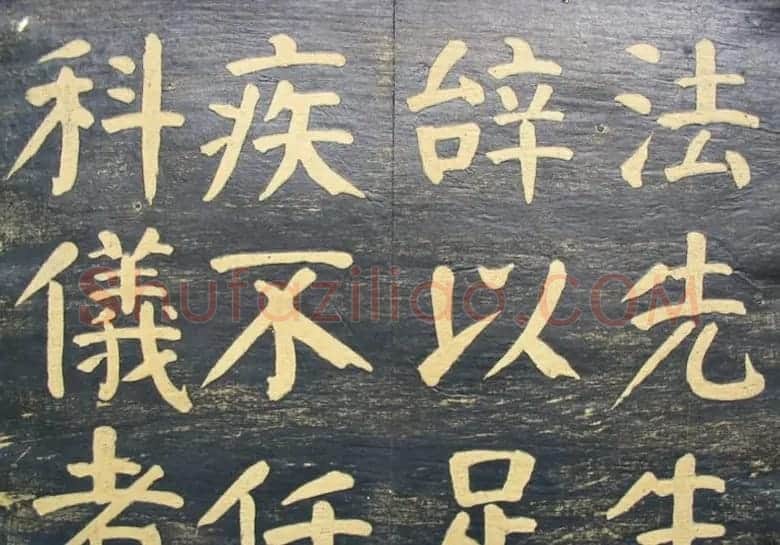 法先生
辝以足
疾不任
科儀者
Shufaziliao.COM